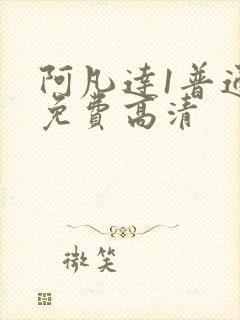 阿凡達1普通
免費高清
微笑